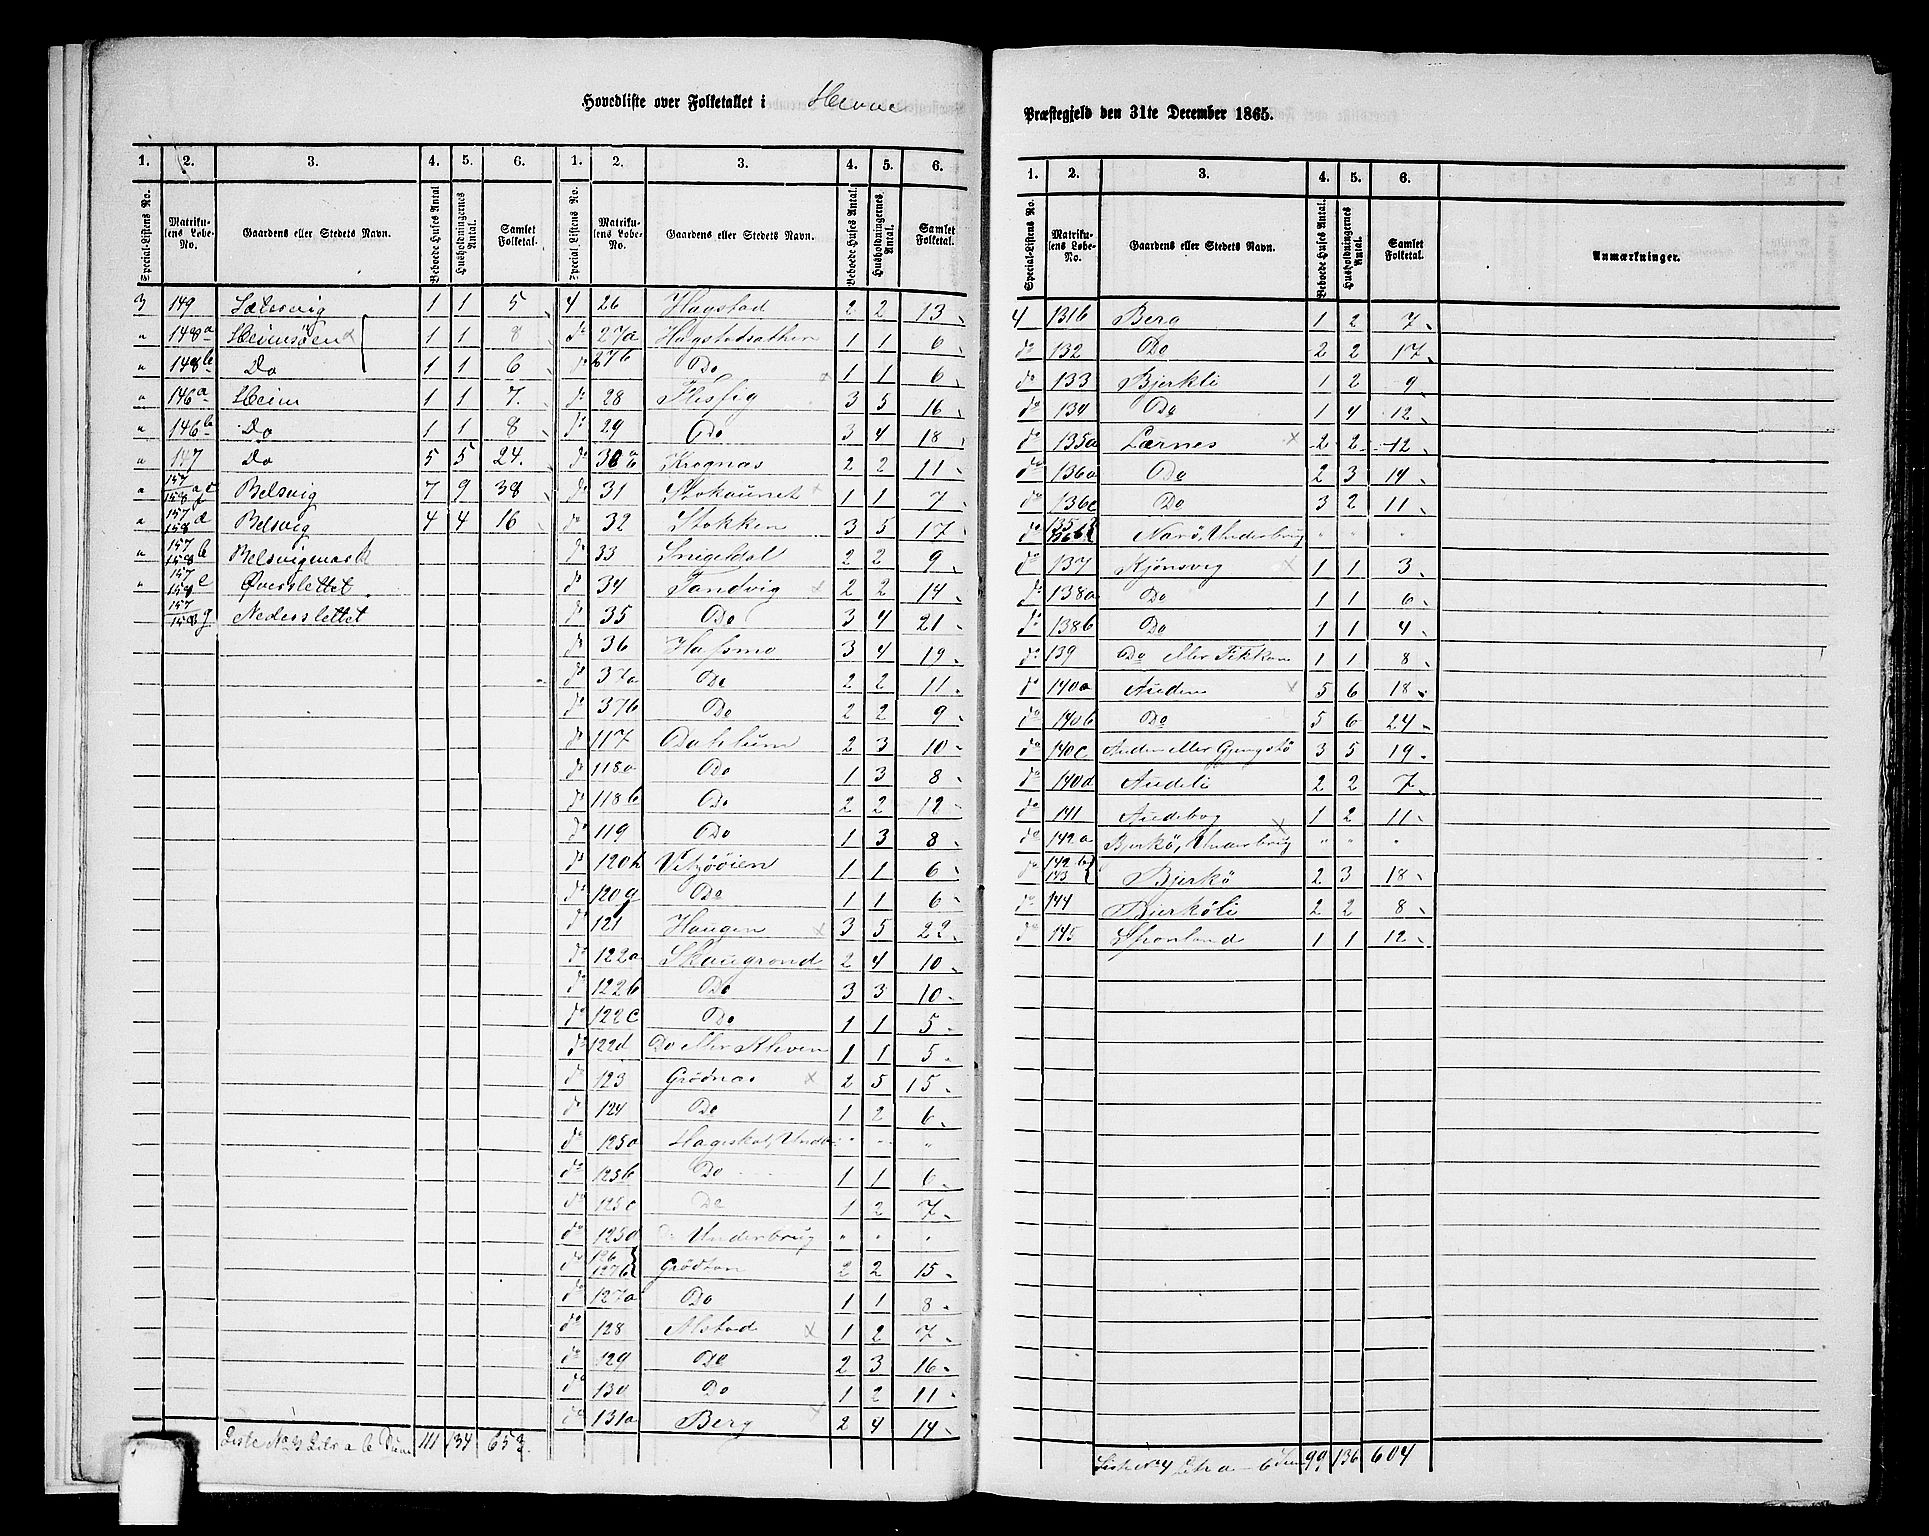 Hovedliste over Folketallet i Hevne
Præstegjeld den 31te December 1865.
1. 2. 3. 4. 5. 6.
Special-Listens No. Matrikulens Løbe-No. Gaardens eller Stedets Navn. Beboede Huses Antal Husholdningernes Antal. Samlet Folketal.
3 149 Sætervig 1 1 5
" 148a Heimsöen 1 1 8
" 148b Do 1 1 6
" 146a Heim 1 1 7
" 146b Do 1 1 8
" 147 Do 5 5 24
" 157 158 a c f Belsvig 7 9 38
" 157 158 d Belsvig 4 4 16
" 157 158 b Belsvigmark
" 157 158 e Øverslettet
157 158 g Nederslettet
Liste No 3 Litr a b Sum 111 134 653
1. 2. 3. 4. 5. 6.
Special-Listens No. Matrikulens Løbe-No. Gaardens eller Stedets Navn. Beboede Huses Antal. Husholdningernes Antal. Samlet Folketal.
4 26 Hagstad 2 2 13
do 27a Hagstadsæther 1 1 6
do 27b Do 1 1 6
do 28 3 5 16
do 29 Do 3 4 18
do 30ab Krognæs 2 2 11
do 31 Stokaunet 1 1 7
do 32 Stokken 3 5 17
do 33 Snigeldal 2 2 9
do 34 Sandvig 2 2 14
do 35 Do 3 4 21
do 36 Hafsmo 3 4 19
do 37a Do 2 2 11
do 37b Do 2 2 9
do 117 Dahlum 2 3 10
do 118a Do 1 3 8
do 118b Do 2 2 12
do 119 Do 1 3 8
do 120h 1 1 6
do 120g Do 1 1 6
do 121 Haugen 3 5 22
do 122a Skaugrand 2 4 10
do 122b Do 3 3 10
do 122c Do 1 1 5
do 122d Do eller Kleven 1 1 5
do 123 Grödnæs 2 5 15
do 124 Do 1 2 6
do 125a " " "
do 125b Do 1 1 6
do 125c Do 1 2 7
do 125d Do Underbrug " " "
do 126 127b Grödtøn 2 2 15
do 127a Do 1 1 8
do 128 Alstad 1 2 7
do 129 Do 2 3 16
do 130 Do 1 2 11
do 131a Berg 2 4 14
1. 2. 3. 4. 5. 6.
Special-Listens No. Matrikulens Løbe-No. Gaardens eller Stedets Navn. Beboede Huses Antal. Husholdningernes Antal. Samlet Folketal. Anmærkninger.
4 131b Berg 1 2 7
do 132 Do 2 2 17
do 133 Bjerkli 1 2 9
do 134 Do 1 4 12
do 135a Lærnes 2 2 12
do 136a Do 2 3 14
do 136c Do 3 2 11
do 135b 136b Narö, Underbrug " " "
do 137 Kjönsvig 1 1 3
do 138a Do 1 1 6
do 138b Do 1 1 4
do 139 Do eller 1 1 8
do 140a Auden 5 6 18
do 140b Do 5 6 24
do 140c Auden eller Gjengstö 3 5 19
do 140d Audeli 2 2 7
do 141 Audebog 1 2 11
do 142a Bjerkö, Underbrug " " "
do 142b 143 Bjerkö 2 3 18
do 144 Bjerköli 2 2 8
do 145 1 1 12
Liste No 4 Litr a-b Sum 99 136 604